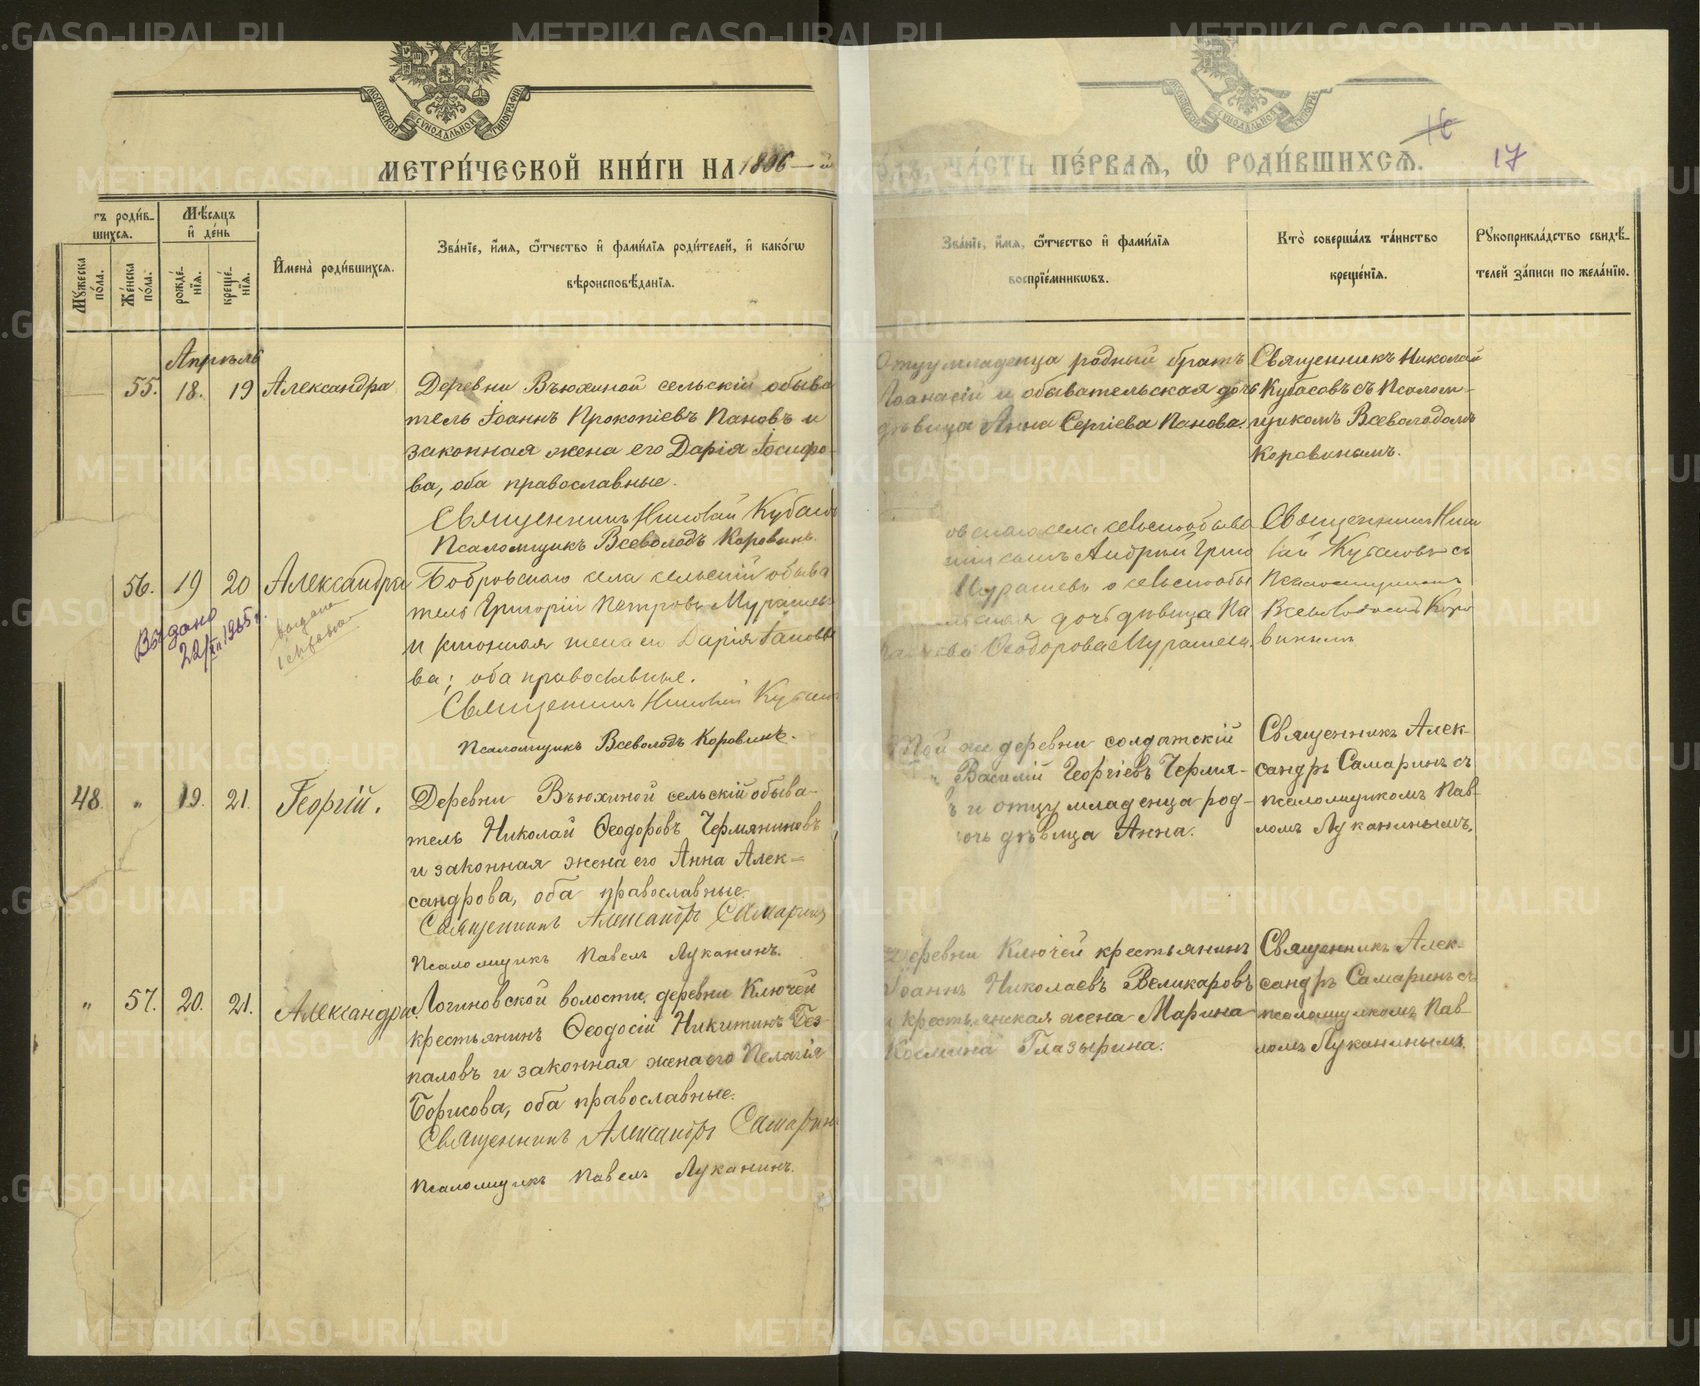 METRIKI.GASO-URAL.RU
МОСКОВСКОЙ СУНОДАЛЬНОЙ ТИПОГРАФІИ
МЕТРИ́ЧЕСКОЙ КНИ́ГИ НА 1896 — й
ЧА́СТЬ ПЕ́РВАЯ, Ѡ҆ РОДИ́ВШИХСЯ.
16
17
тъ роди́в-
шихся.
Мѣ́сяцъ
и҆ де́нь
Мꙋ́жеска по́ла.
Же́нска по́ла.
рожде́-нїѧ.
креще́-нїѧ.
И҆мена̀ роди́вшихся.
Зва́нїе, и҆́мя, ѻ҆́тчество и҆ фами́лїя роди́телей, и҆ како́гѡ
вѣроисповѣ́данїя.
Зва́нїе, и҆́мя, ѻ҆́тчество и҆ фами́лїя
воспрїе́мникѡвъ.
Кто̀ соверша́лъ та́инство
креще́нїя.
Рꙋкоприкла́дство свидѣ́-
телей за́писи по жела́нїю.
Апрѣль
55. 18. 19 Александра
Деревни Вьюхиной сельскій обыва
тель Іоаннъ Прокопіевъ Пановъ и
законная жена его Дарія Іосифо-
ва, оба православные.
Священникъ Николай Кубасовъ
Псаломщикъ Всеволодъ Коровинъ.
Отцу младенца родный братъ
Аѳанасій и обывательская дочь
дѣвица Анна Сергіева Панова.
Священникъ Николай
Кубасовъ съ Псалом-
щикомъ Всеволодомъ
Коровинымъ.
56. 19 20 Александра
Выдано
22/XII 1965 г.
выдана
справка
Бобровскаго села сельскій обыва
тель Григорій Петровъ Мурашевъ
и законная жена его Дарія Іаковле
ва; оба православные.
Священникъ Николай Кубасовъ
Псаломщикъ Всеволодъ Коровинъ.
овскаго села сельскообыва
сынъ Андрей Григо
Мурашевъ и сельскообы
дочь дѣвица Па
Ѳеодорова Мурашева.
Священникъ Нико
лай Кубасовъ съ
Псаломщикомъ
Всеволодомъ Коро
винымъ
48. " 19. 21. Георгій.
Деревни Вьюхиной сельскій обыва-
тель Николай Ѳеодоровъ Чермяниновъ
и законная жена его Анна Алек-
сандрова, оба православные.
Священникъ Александръ Самаринъ
Псаломщикъ Павелъ Луканинъ.
Той же деревни солдатскій
Василій Георгіевъ Чермя-
ъ и отцу младенца род-
очь дѣвица Анна.
Священникъ Алек-
сандръ Самаринъ съ
псаломщикомъ Пав-
ломъ Луканинымъ.
" 57. 20. 21. Александра
Логиновской волости, деревни Ключей
крестьянинъ Ѳеодосій Никитинъ Без-
паловъ и законная жена его Пелагія
Борисова, оба православные.
Священникъ Александръ Самаринъ
Псаломщикъ Павелъ Луканинъ.
Деревни Ключей крестьянинъ
Іоаннъ Николаевъ Великаровъ
и крестьянская жена Марина
Космина Глазырина.
Священникъ Алек-
сандръ Самаринъ съ
псаломщикомъ Пав-
ломъ Луканинымъ.